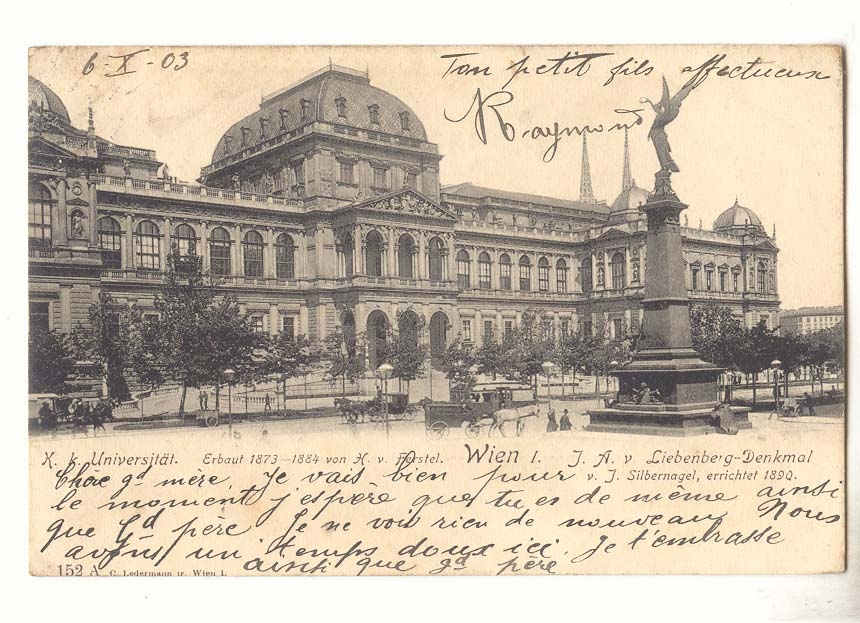 6-X-03
Ton petit fils affectueux
Raymond
K. k. Universität. Erbaut 1873—1884 von H. v. Ferstel. Wien I. J. A. v Liebenberg-Denkmal
v. J. Silbernagel, errichtet 1890.
Chère gd mère, Je vais bien pour
le moment j'espère que tu es de même ainsi
que Gd père Je ne vois rien de nouveau Nous
avons un temps doux ici. Je t'embrasse
ainsi que gd père
152 A C. Ledermann jr. Wien I.